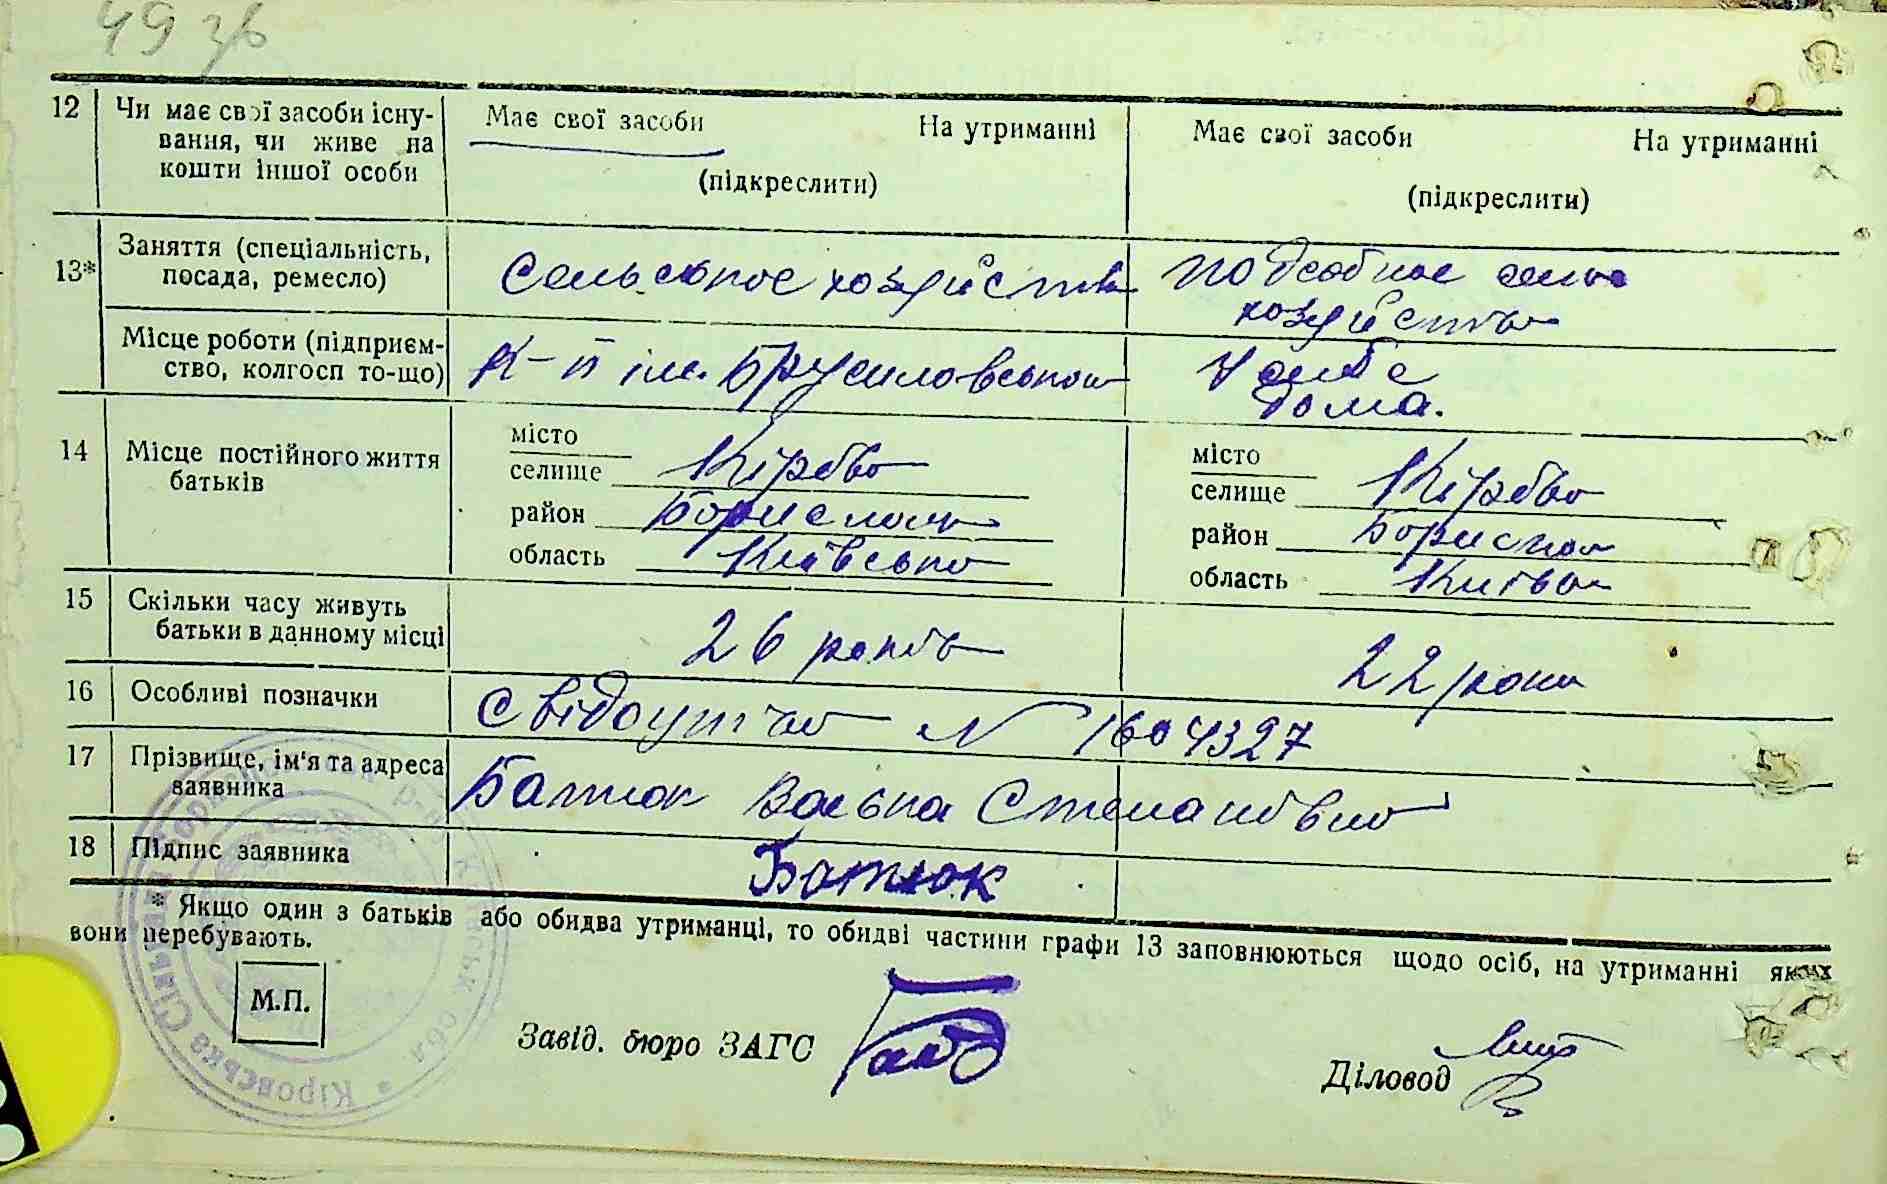 49 зв
12 Чи має свої засоби існу-
вання, чи живе на
кошти іншої особи
Має свої засоби На утриманні
(підкреслити)
Має свої засоби На утриманні
(підкреслити)
13* Заняття (спеціальність,
посада, ремесло)
Сельское хозяйство
подсобное
хозяйство
Місце роботи (підприєм-
ство, колгосп то-що)
К-п ім.
у себе
дома.
14 Місце постійного життя
батьків
місто
селище Кірово
район
область Київсько
місто
селище Кірово
район
область
15 Скільки часу живуть
батьки в данному місці
26 років
22 роки
16 Особливі позначки
Свідоцтво N 1604327
17 Прізвище, ім'я та адреса
заявника
Батюк Степанівна
18 Підпис заявника
Батюк
* Якщо один з батьків або обидва утриманці, то обидві частини графи 13 заповнюються щодо осіб, на утриманні яких
вони перебувають.
М.П.
Завід. бюро ЗАГС
Діловод
Кіровська Сільська